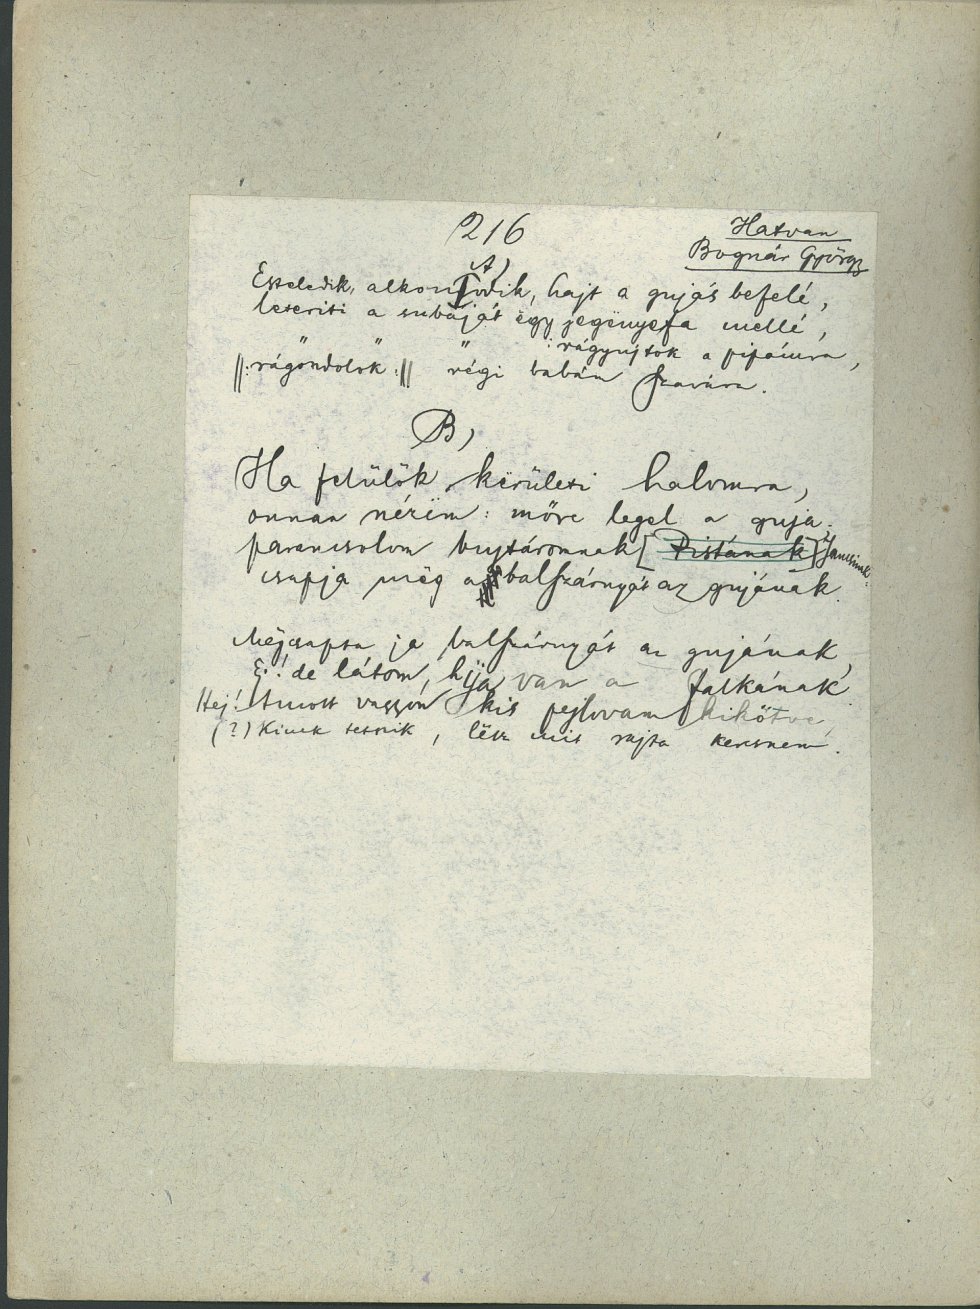 216
Hatvan
Bognár György
A)
Esteledik, alkonyodik, hajt a gujás befelé,
leteriti a subáját ëgy jegënyefa mellé,
: rágyujtok a pipámra,
||: rágondolok :|| " régi babám szavára.
B)
Ha felülök kërületi halomra,
onnan nézëm: mőre legel a guja.
parancsolom bujtáromnak [Pistának] Jancsinak:
csapja mëg a balszárnyát az gujának.
Mëjcsapta ja balszárnyát az gujának,
Ej! de látom, hija van a falkának
Hej! Amott vagyon kis fejlovam kikötve,
(?) Kinek tetszik, lësz mit rajta keresnem.